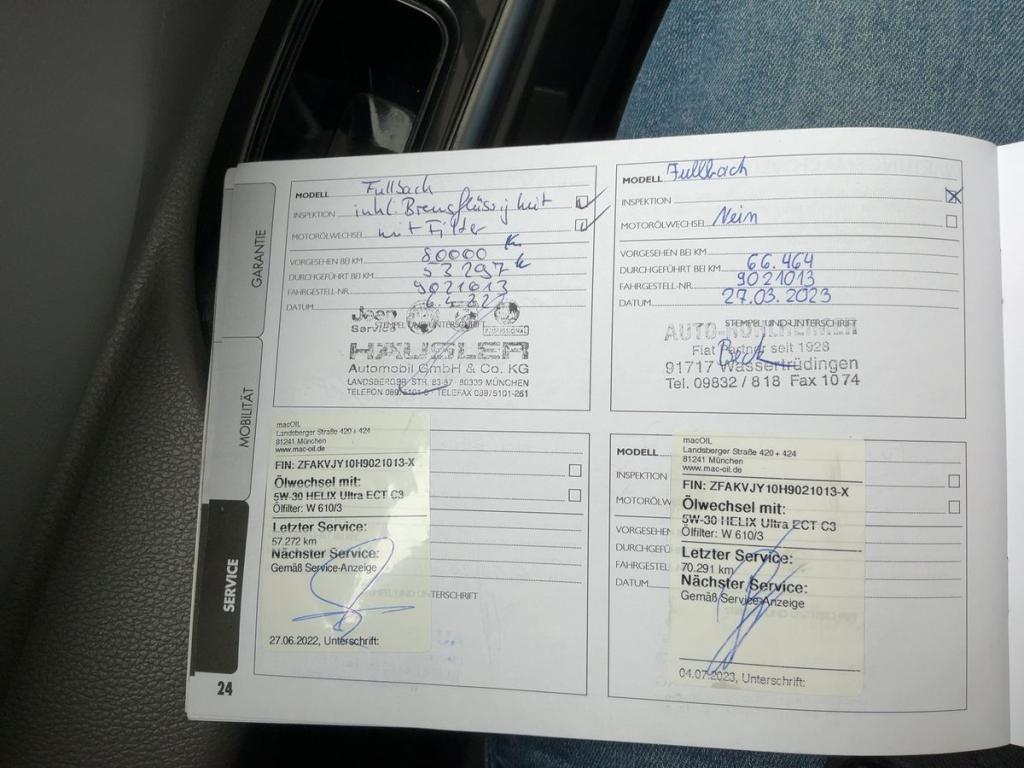 GARANTIE
MOBILITÄT
SERVICE
24
MODELL Fullback
INSPEKTION inkl. Bremsflüssigkeit
MOTORÖLWECHSEL mit Filter
VORGESEHEN BEI KM 80000
DURCHGEFÜHRT BEI KM 53297
FAHRGESTELL-NR. 9021013
DATUM 6.4.22
STEMPEL UND UNTERSCHRIFT
Jeep
Service
PROFESSIONAL
HÄUSLER
Automobil GmbH & Co. KG
LANDSBERGER STR. 83-87 · 80339 MÜNCHEN
TELEFON 089/5101-0 · TELEFAX 089/5101-261
MODELL Fullbach
INSPEKTION
MOTORÖLWECHSEL Nein
VORGESEHEN BEI KM
DURCHGEFÜHRT BEI KM 66.464
FAHRGESTELL-NR. 9021013
DATUM 27.03.2023
STEMPEL UND UNTERSCHRIFT
Fiat Partner seit 1928
91717 Wassertrüdingen
Tel. 09832 / 818 Fax 1074
macOIL
Landsberger Straße 420 + 424
81241 München
www.mac-oil.de
FIN: ZFAKVJY10H9021013-X
Ölwechsel mit:
5W-30 HELIX Ultra ECT C3
Ölfilter: W 610/3
Letzter Service:
57.272 km
Nächster Service:
Gemäß Service-Anzeige
27.06.2022, Unterschrift:
MODELL
INSPEKTION
MOTORÖLW
VORGESEHEN
DURCHGEFÜ
FAHRGESTEL
DATUM
macOIL
Landsberger Straße 420 + 424
81241 München
www.mac-oil.de
FIN: ZFAKVJY10H9021013-X
Ölwechsel mit:
5W-30 HELIX Ultra ECT C3
Ölfilter: W 610/3
Letzter Service:
70.291 km
Nächster Service:
Gemäß Service-Anzeige
04.07.2023, Unterschrift: